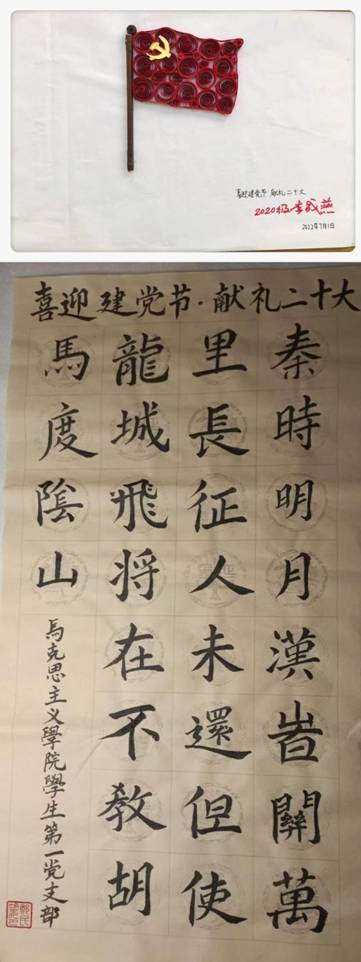 喜迎建党节 献礼二十大
2020级李
2022年7月1日
喜迎建党节·献礼二十大
秦時明月漢旹關萬
里長征人未還但使
龍城飛将在不教胡
馬度陰山
馬克思主义學院學生第一党支部